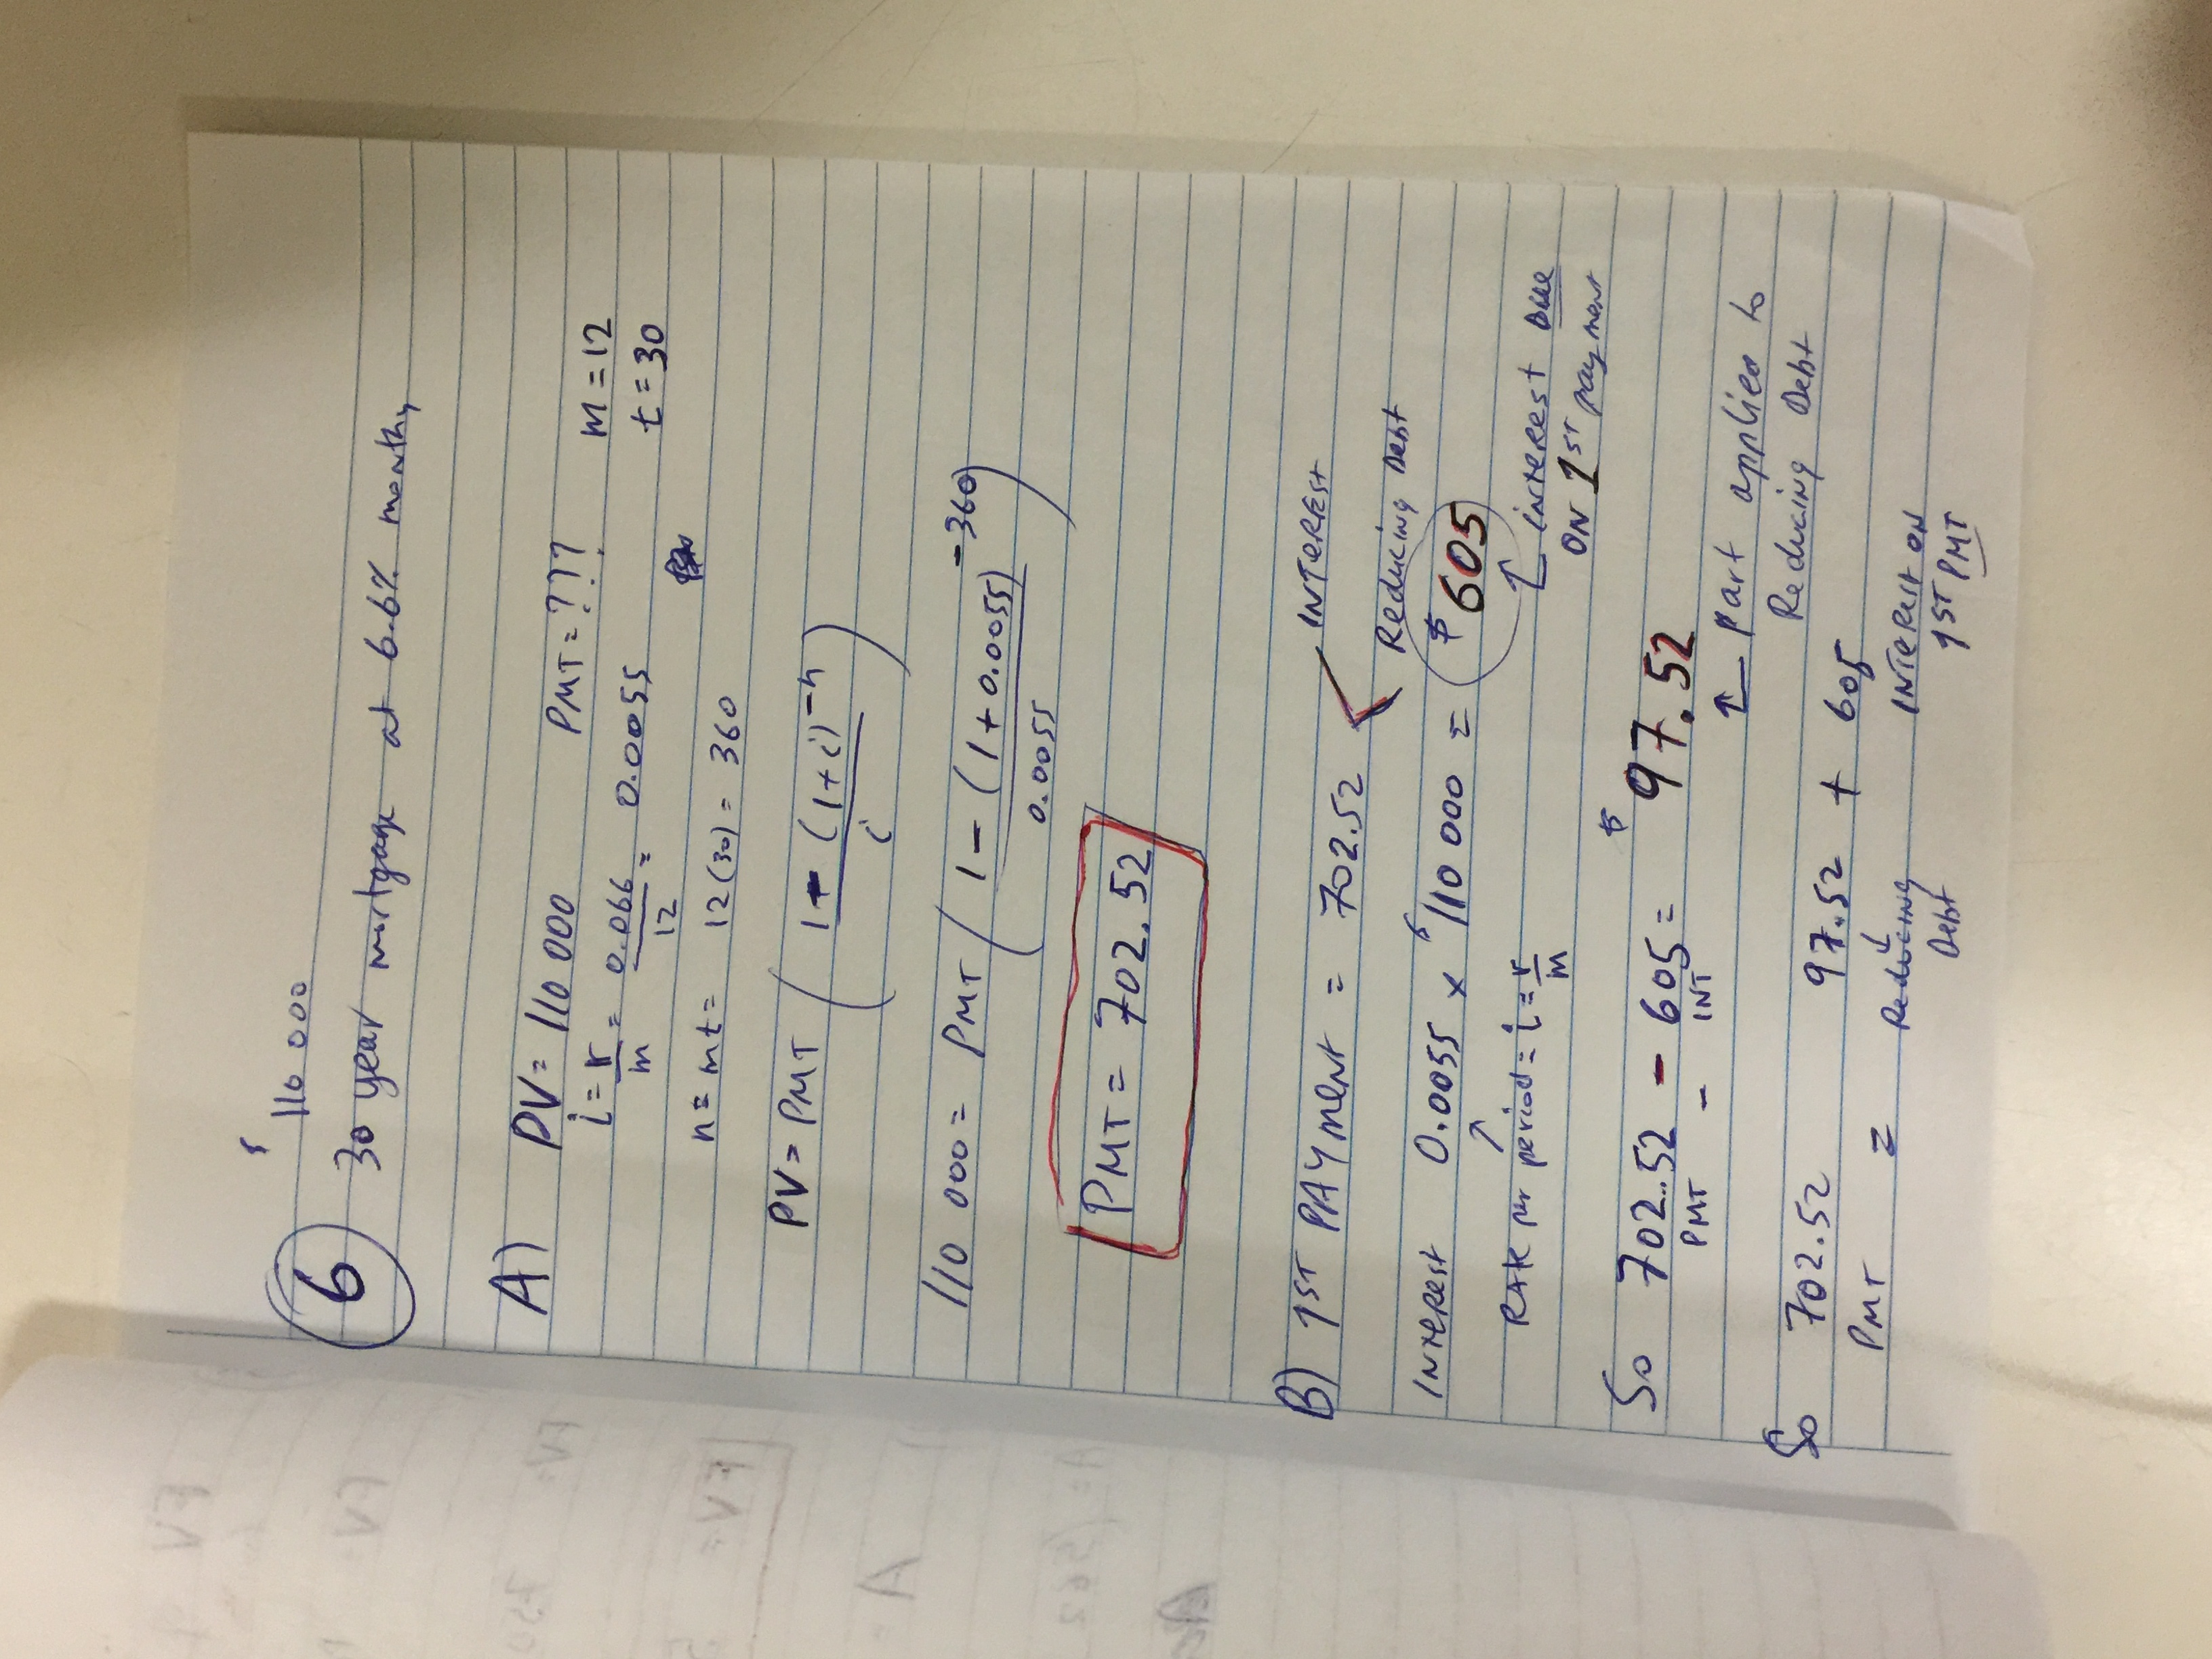 $ 110 000
6
30 year mortgage at 6.6% monthly
A) PV = 110 000 PMT = ???
i = r/m = 0.066/12 = 0.0055 m = 12
n = mt = 12(30) = 360 t = 30
PV = PMT ( 1 - (1+i)^-n / i )
110 000 = PMT ( 1 - (1+0.0055)^-360 / 0.0055 )
PMT = 702.52
B) 1ST PAYMENT = 702.52 < INTEREST
Reducing Debt
INTEREST 0.0055 × 110 000 = $605
Rate per period = i = r/m
↑ INTEREST DUE
ON 1ST payment
So 702.52 - 605 = $97.52
PMT - INT
↑ part applied to
Reducing Debt
So 702.52 97.52 + 605
PMT = Reducing Debt INTEREST ON 1ST PMT